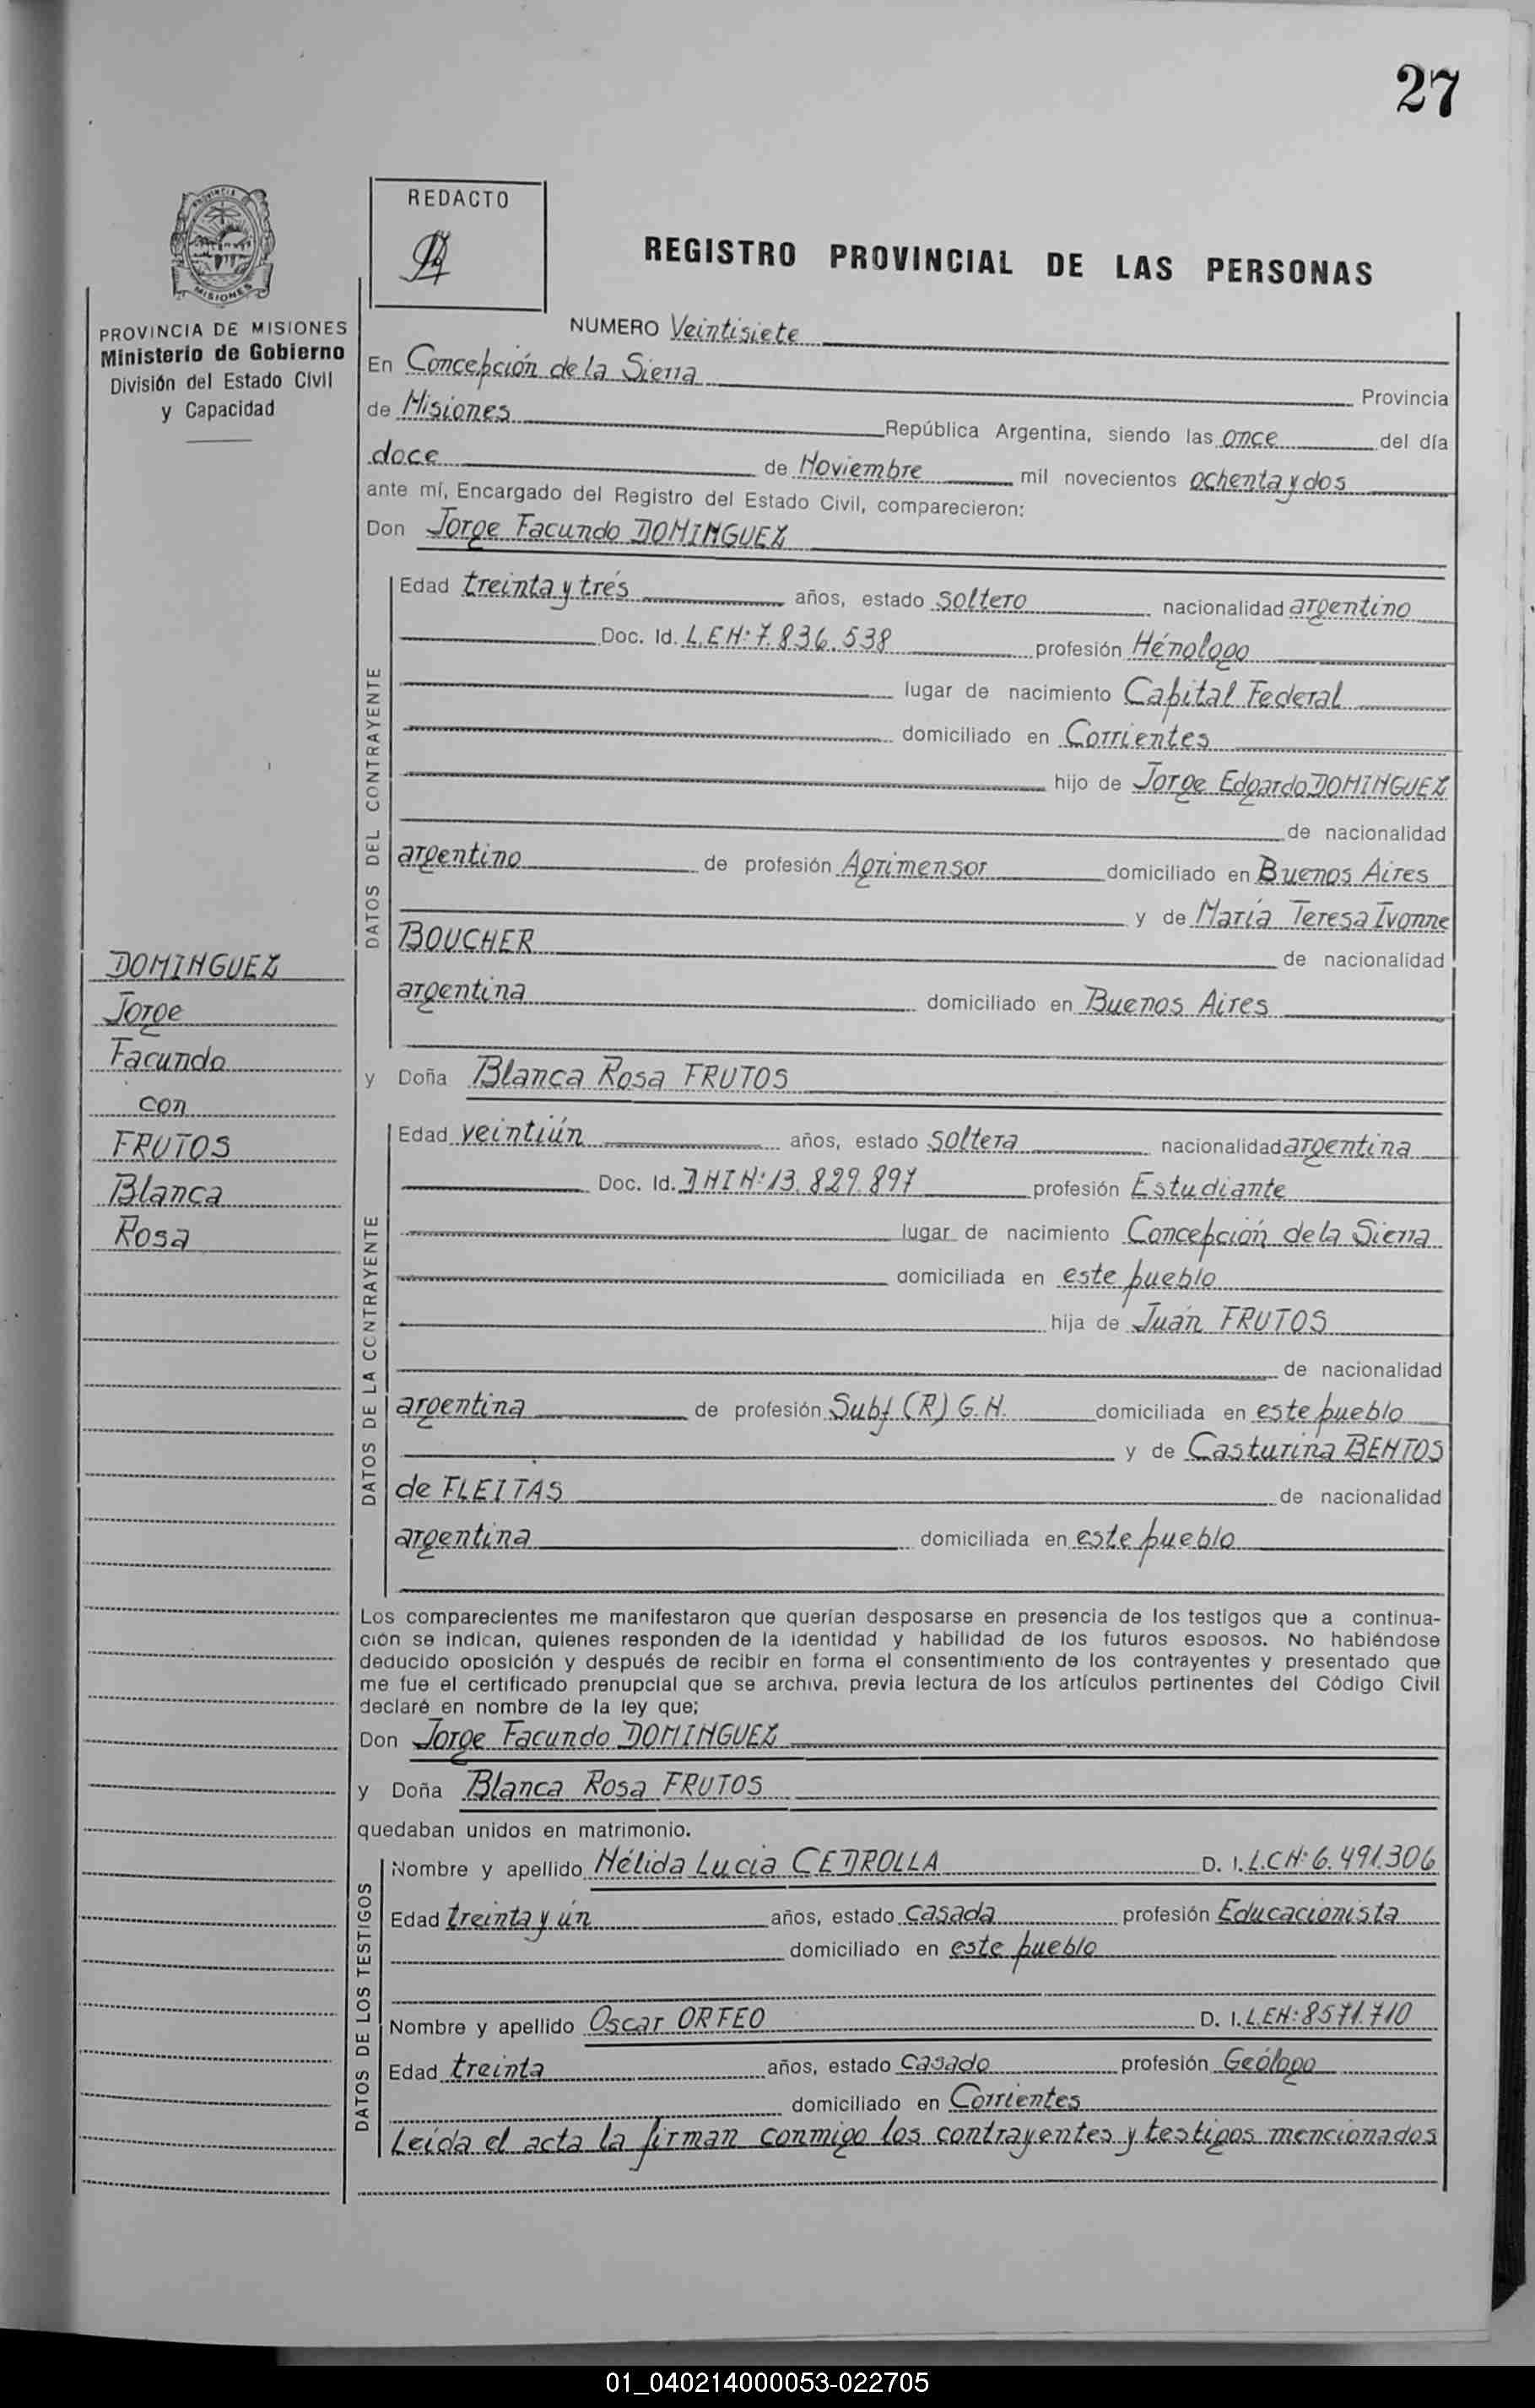 27
REDACTO
REGISTRO PROVINCIAL DE LAS PERSONAS
PROVINCIA DE MISIONES
Ministerio de Gobierno
División del Estado Civil
y Capacidad
NUMERO Veintisiete
En Concepción de la Sierra Provincia
de Misiones República Argentina, siendo las once del día
doce de Noviembre mil novecientos ochenta y dos
ante mí, Encargado del Registro del Estado Civil, comparecieron:
Don Jorge Facundo DOMINGUEZ
DATOS DEL CONTRAYENTE
Edad treinta y trés años, estado soltero nacionalidad argentino
Doc. Id. L.EN: 7.836.538 profesión Hénologo
lugar de nacimiento Capital Federal
domiciliado en Corrientes
hijo de Jorge Edgardo DOMINGUEZ
de nacionalidad
argentino de profesión Agrimensor domiciliado en Buenos Aires
y de María Teresa Ivonne
BOUCHER de nacionalidad
argentina domiciliado en Buenos Aires
DOMINGUEZ
Jorge
Facundo
con
FRUTOS
Blanca
Rosa
y Doña Blanca Rosa FRUTOS
DATOS DE LA CONTRAYENTE
Edad veintiún años, estado soltera nacionalidad argentina
Doc. Id. DNIN: 13.829.897 profesión Estudiante
lugar de nacimiento Concepción de la Sierra
domiciliada en este pueblo
hija de Juán FRUTOS
de nacionalidad
argentina de profesión Subf (R) G.N. domiciliada en este pueblo
y de Casturina BENTOS
de FLEITAS de nacionalidad
argentina domiciliada en este pueblo
Los comparecientes me manifestaron que querían desposarse en presencia de los testigos que a continua-
ción se indican, quienes responden de la identidad y habilidad de los futuros esposos. No habiéndose
deducido oposición y después de recibir en forma el consentimiento de los contrayentes y presentado que
me fue el certificado prenupcial que se archiva, previa lectura de los artículos pertinentes del Código Civil
declaré en nombre de la ley que;
Don Jorge Facundo DOMINGUEZ
y Doña Blanca Rosa FRUTOS
quedaban unidos en matrimonio.
DATOS DE LOS TESTIGOS
Nombre y apellido Nélida Lucia CEDROLLA D. I. L.CN: 6.491.306
Edad treinta y ún años, estado casada profesión Educacionista
domiciliado en este pueblo
Nombre y apellido Oscar ORFEO D. I. L.EN: 8571.710
Edad treinta años, estado casado profesión Geólogo
domiciliado en Corrientes
Leída el acta la firman conmigo los contrayentes y testigos mencionados
01_040214000053-022705